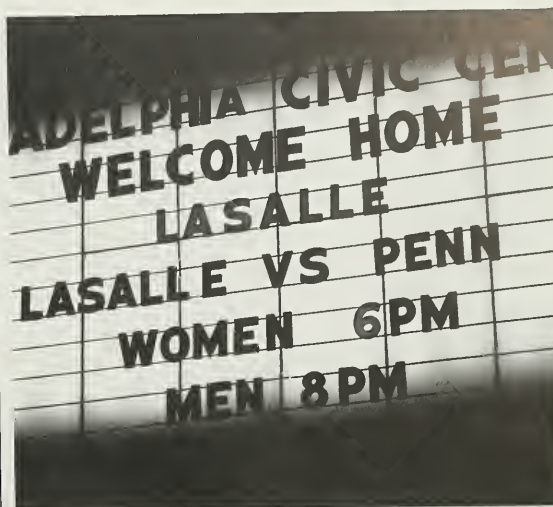 ADELPHIA CIVIC CEN
WELCOME HOME
LASALLE
LASALLE VS PENN
WOMEN 6PM
MEN 8PM